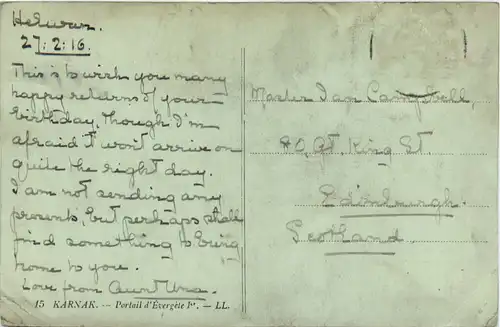 Helwan.
27:2:16.
This is to wish you many
happy returns of your
birthday, though I'm
afraid it won't arrive on
quite the right day.
I am not sending any
presents, but perhaps shall
find something to bring
home to you.
Love from Aunt Una.
15 KARNAK. — Portail d'Évergète Iᵉʳ. — LL.
Master Ian Campbell
Gt. King St.
Edinburgh.
Scotland